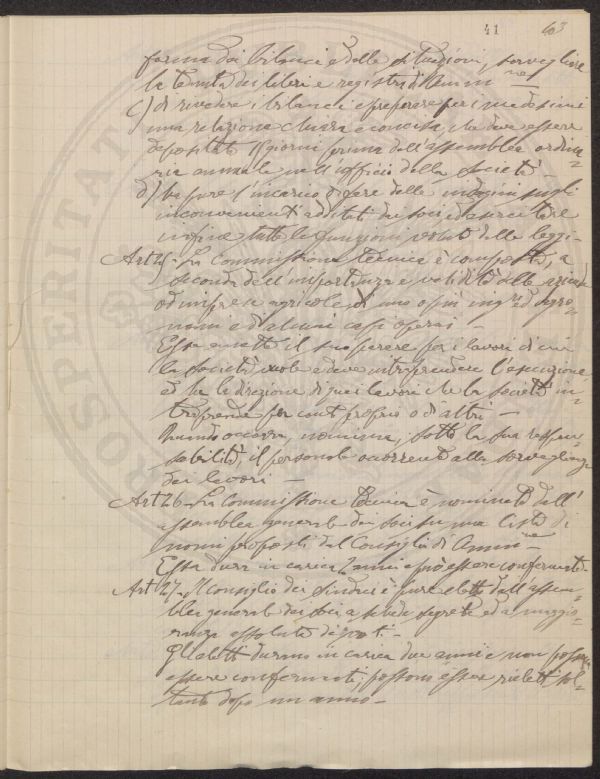 41 63
forma dei bilanci e delle situazioni, sorvegliare
la tenuta dei libri e registri d'Ammne
c) di rivedere i bilanci e preparare per i medesimi
una relazione chiara e concisa, che deve essere
depositata 15 giorni prima dell'assemblea ordina=
ria annuale nell'ufficio della Società -
d) ha pure l'incarico di fare delle indagini sugli
inconvenienti additati dai soci ed esercitare
infine tutte le funzioni volute dalle leggi -
Art 25 - La Commissione tecnica è composta, a
seconda dell'importanza e validità delle aziende
od imprese agricole, di uno o più ingri ed agro=
nomi e di alcuni capi operai -
Essa emette il suo parere per i lavori di cui
la società vuole e deve intraprendere l'esecuzione
ed ha la direzione di quei lavori che la società in=
traprende per conto proprio o di altri -
Quando occorra, nomina, sotto la sua respon=
sabilità, il personale occorrente alla sorveglianza
dei lavori -
Art 26 - La Commissione tecnica è nominata dall'
assemblea generale dei soci su una lista di
nomi proposti dal Consiglio di Ammne -
Essa dura in carica 2 anni e può essere confermata -
Art 27 - Il consiglio dei sindaci è pure eletto dall'assem=
blea generale dei soci a schede segrete ed a maggio=
ranza assoluta di voti -
Gli eletti durano in carica due anni e non possono
essere confermati; possono essere rieletti sol=
tanto dopo un anno -
PROSPERITAT